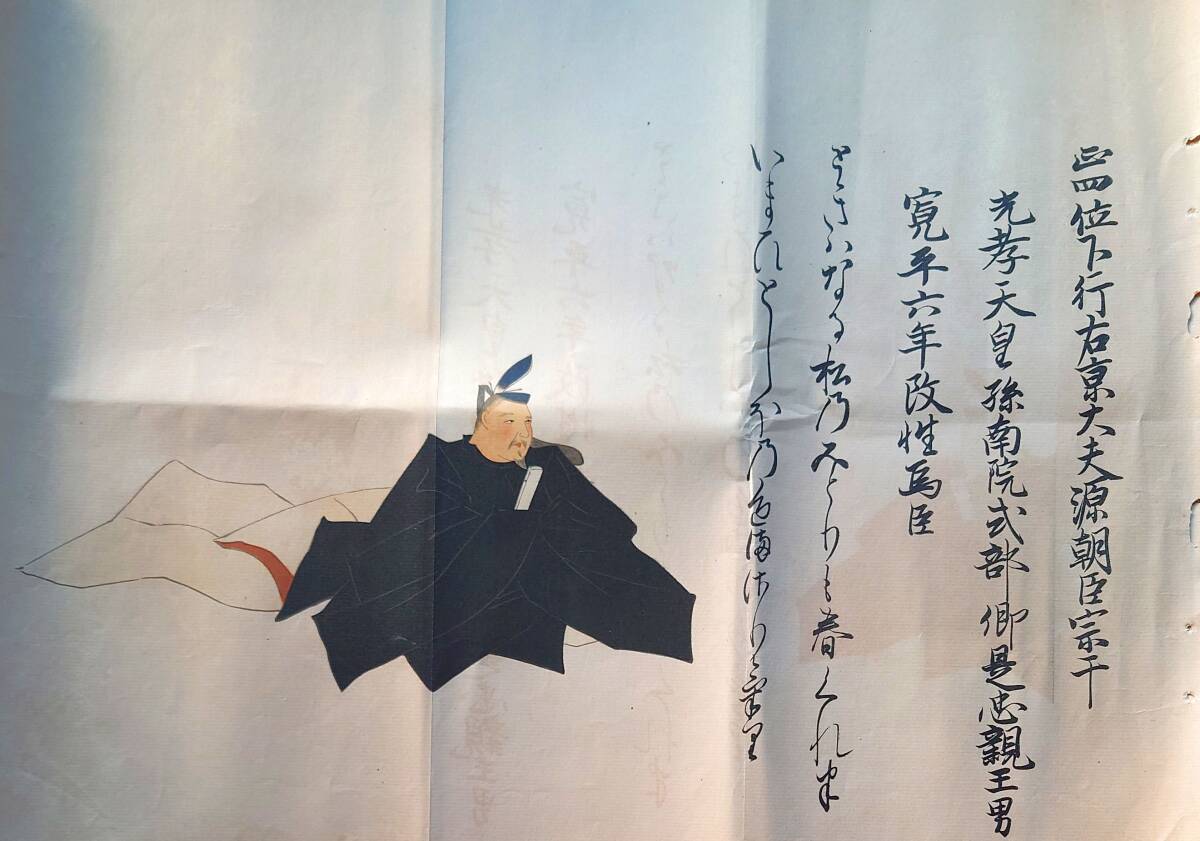 正四位下行右京大夫源朝臣宗于
光孝天皇孫南院式部卿是忠親王男
寛平六年改性為臣
ときはなる松乃みとりも春くれは
いまひとしほ乃色まさりけり